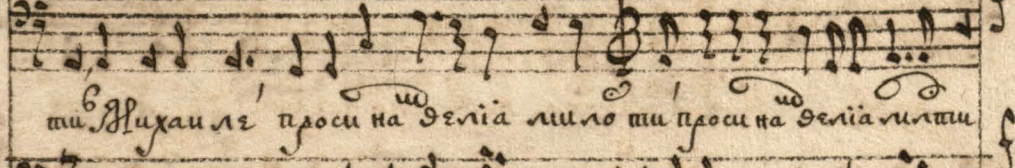 ти Михаиле проси на делїа мило ти проси на делїа мллти